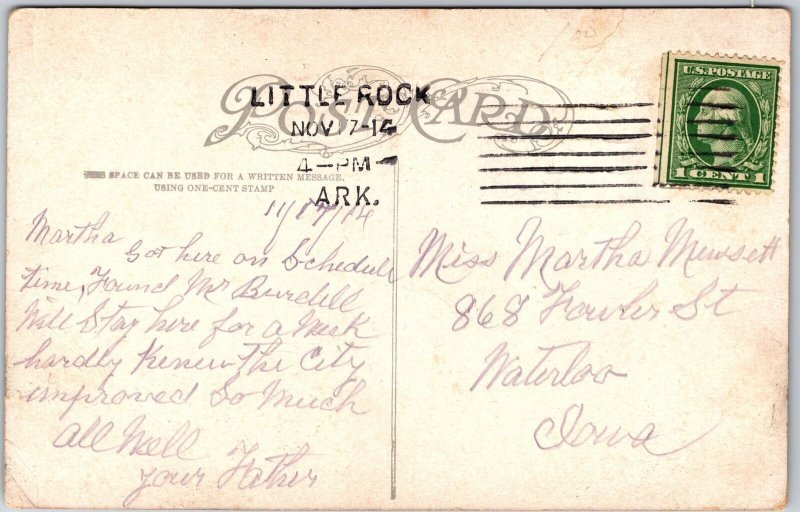 POST CARD
LITTLE ROCK
NOV 17-14
4-PM
ARK.
U.S. POSTAGE
1 CENT 1
SPACE CAN BE USED FOR A WRITTEN MESSAGE,
USING ONE-CENT STAMP
11/17/14
Martha
Got here on Schedule
time, Found Mr Burdell
Will Stay here for a Week
hardly Kenew The City
improved So Much
All Well
your Father
Miss Martha
868 Fowler St
Waterloo
Iowa